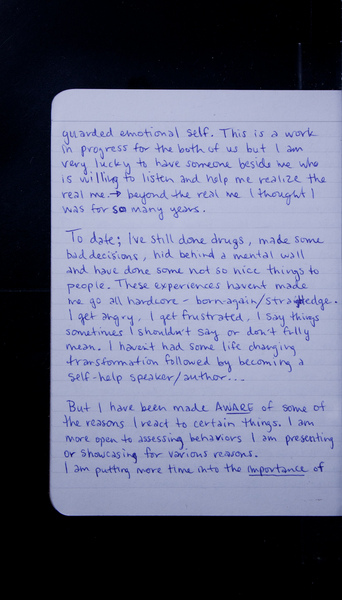 guarded emotional self. This is a work
in progress for the both of us but I am
very lucky to have someone beside me who
is willing to listen and help me realize the
real me → beyond the real me I thought I
was for so many years.
To date; I've still done drugs, made some
bad decisions, hid behind a mental wall
and have done some not so nice things to
people. These experiences havent made
me go all hardcore - born-again/straightedge.
I get angry, I get frustrated, I say things
sometimes I shouldn't say or don't fully
mean. I haven't had some life changing
transformation followed by becoming a
self-help speaker/author...
But I have been made AWARE of some of
the reasons I react to certain things. I am
more open to assessing behaviors I am presenting
or showcasing for various reasons.
I am putting more time into the importance of